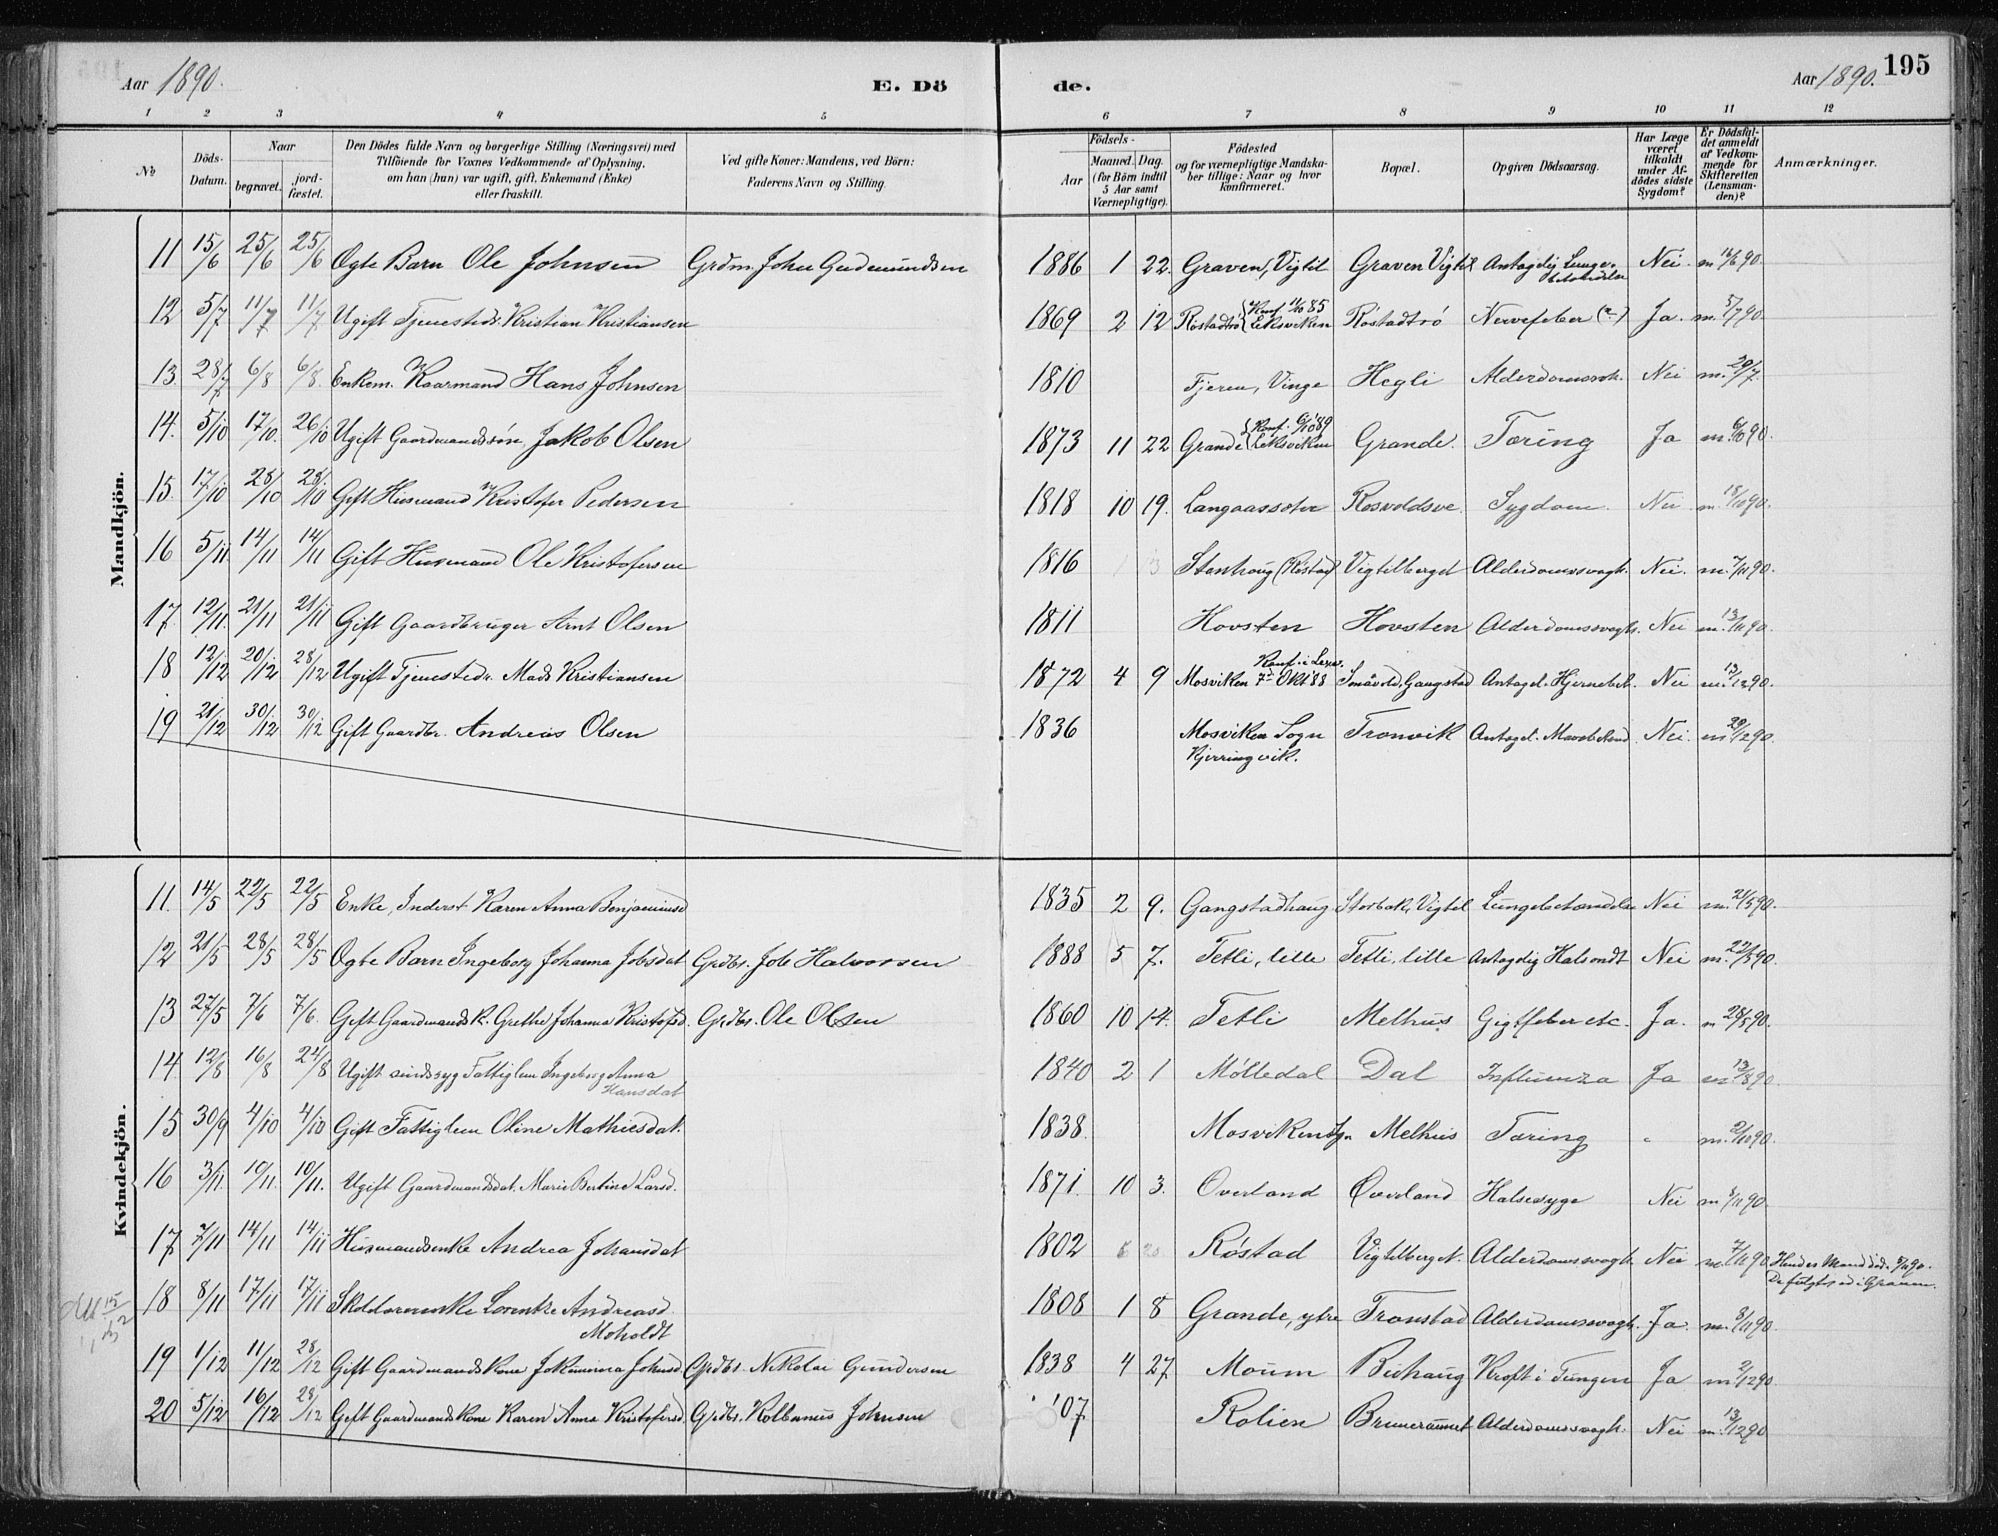 Aar 1890. E. Dö de. Aar 1890. 195
1 2 3 4 5 6 7 8 9 10 11 12
№ Döds-Datum. Naar begravet. jord-fæstet. Den Dödes fulde Navn og borgerlige Stilling (Næringsvei) med Tilföiende for Voxnes Vedkommende af Oplysning, om han (hun) var ugift, gift, Enkemand (Enke) eller fraskilt. Ved gifte Koner: Mandens, ved Börn: Faderens Navn og Stilling. Födsels- Aar Maaned. Dag. (for Börn indtil 5 Aar samt Værnepligtige). Födested og for værnepligtige Mandska-ber tillige: Naar og hvor konfirmeret. Bopæl. Opgiven Dödsaarsag. Har Læge været tilkaldt under Af-dödes sidste Sygdom? Er Dödsfal-det anmeldt af Vedkom-mende for Skifteretten (Lensman-den)? Anmærkninger.
Mandkjön.
11 15/6 25/6 25/6 Ægte Barn Ole Johnsen Grdm. John Gudmundsen 1886 1 22. Graven, Vigtil Graven Vigtil Antagelig Lunge-betændelse Nei m. 16/6 90.
12 5/7 11/7 11/7 Ugift Tjenestedr. Kristian Kristiansen 1869 2 12 Röstadtrö Konf. 11/10 85 Leksviken Röstadtrö Nervefeber (?) Ja. m. 5/7 90.
13. 28/7 6/8 6/8. Enkem. Kaarmand Hans Johnsen 1810 Fjeren, Vinge Hegli Alderdomssvk. Nei m. 29/7.
14. 5/10 17/10. 26/10 Ugift Gaardmandssön Jakob Olsen 1873 11 22 Grande Konf. 6/10 89 Leksviken Grande. Tæring Ja m. 6/10 90.
15. 17/10 28/10 28/10 Gift Husmand Kristofer Pedersen 1818 10 19. Langaassæter Rosvoldsve. Sygdom. Nei m. 18/10 90.
16 5/11. 14/11 14/11 Gift Husmand Ole Kristofersen 1816 Stanhoug (Röstad) Vigtilberget Alderdomssvagh. Nei. m. 7/11 90.
17. 12/11. 21/11 21/11 Gift Gaardbruger Arnt Olsen 1811 Hovsten Hovsten Alderdomssvagh. Nei m. 13/11 90.
18 12/12 20/12 28/12 Ugift Tjenestedr. Mads Kristiansen 1872 4 9 Mosviken Konf. i Lexv. 7de Okt 88 Småvold, Gangstad Antagel. Hjernebet. Nei m. 13/12 90.
19 21/12 30/12 30/12 Gift Gaardbr. Andreas Olsen 1836 Mosviken Sogn Kjerringvik. Tronvik Antagel. Mavebetænd. Nei. m 29/12 90.
Kvindekjön.
11. 14/5 22/5 22/5 Enke, Inderst Karen Anna Benjaminsd 1835 2 9. Gangstadhaug Storbak, Vigtil Lungebetændelse Nei m. 21/5 90.
12 21/5 28/5 28/5 Ægte Barn Ingeborg Johanna Jobsdat Grdbr. Job Halvorsen 1888 5 7. Tetli, lille Tetli, lille Antagelig Halsondt Nei m. 22/5 90.
13 27/5 7/6 7/6. Gift Gaardmandsk. Grethe Johanna Kristofsd. Grdbr. Ole Olsen 1860 10 14. Tetli Melhus Gigtfeber etc. Ja. m 28/5 90.
14. 12/8 16/8 24/8 Ugift sindssyg Fattiglem Ingeborg Anna Hansdat 1840 2 1 Mölledal Dal Influenza Ja m 13/8 90.
15 30/9 4/10 4/10 Gift Fattiglem Oline Mathiesdat. 1838. Mosviken Sgn Melhus Tæring " m. 2/10 90.
16 3/11. 10/11. 10/11. Ugift Gaardmandsdat. Marie Bertine Larsd. 1871. 10 3. Overland Overland Halsesyge Nei m 8/11 90.
17. 7/11 14/11 14/11 Husmandsenke Andrea Johansdat 1802 Röstad Vigtilberget. Alderdomssvagh. Nei m 7/11 90 Hendes Mand död 5/11 90. De fulgtes ad i Graven.
18 8/11 17/11 17/11 Skolelærerenke Lorentze Andreasd. Moholdt 1808 1 8 Grande, ytre Tronstad Alderdomssvagh. Ja. m. 8/11 90.
19 1/12 11/12 28/12 Gift Gaardmandskone Jokumina Johnsd Grdbr. Nikolai Gundersen 1838 4 27. Moum Bidhaug Kræft i Tungen Ja m 2/12 90.
20 5/12 16/12 28/12 Gift Gaardmandskone Karen Anna Kristofersd. Grdbr. Kolbanus Johnsen '07 Rolien Brunerumet Alderdomssvagh. Nei m. 13/12 90.